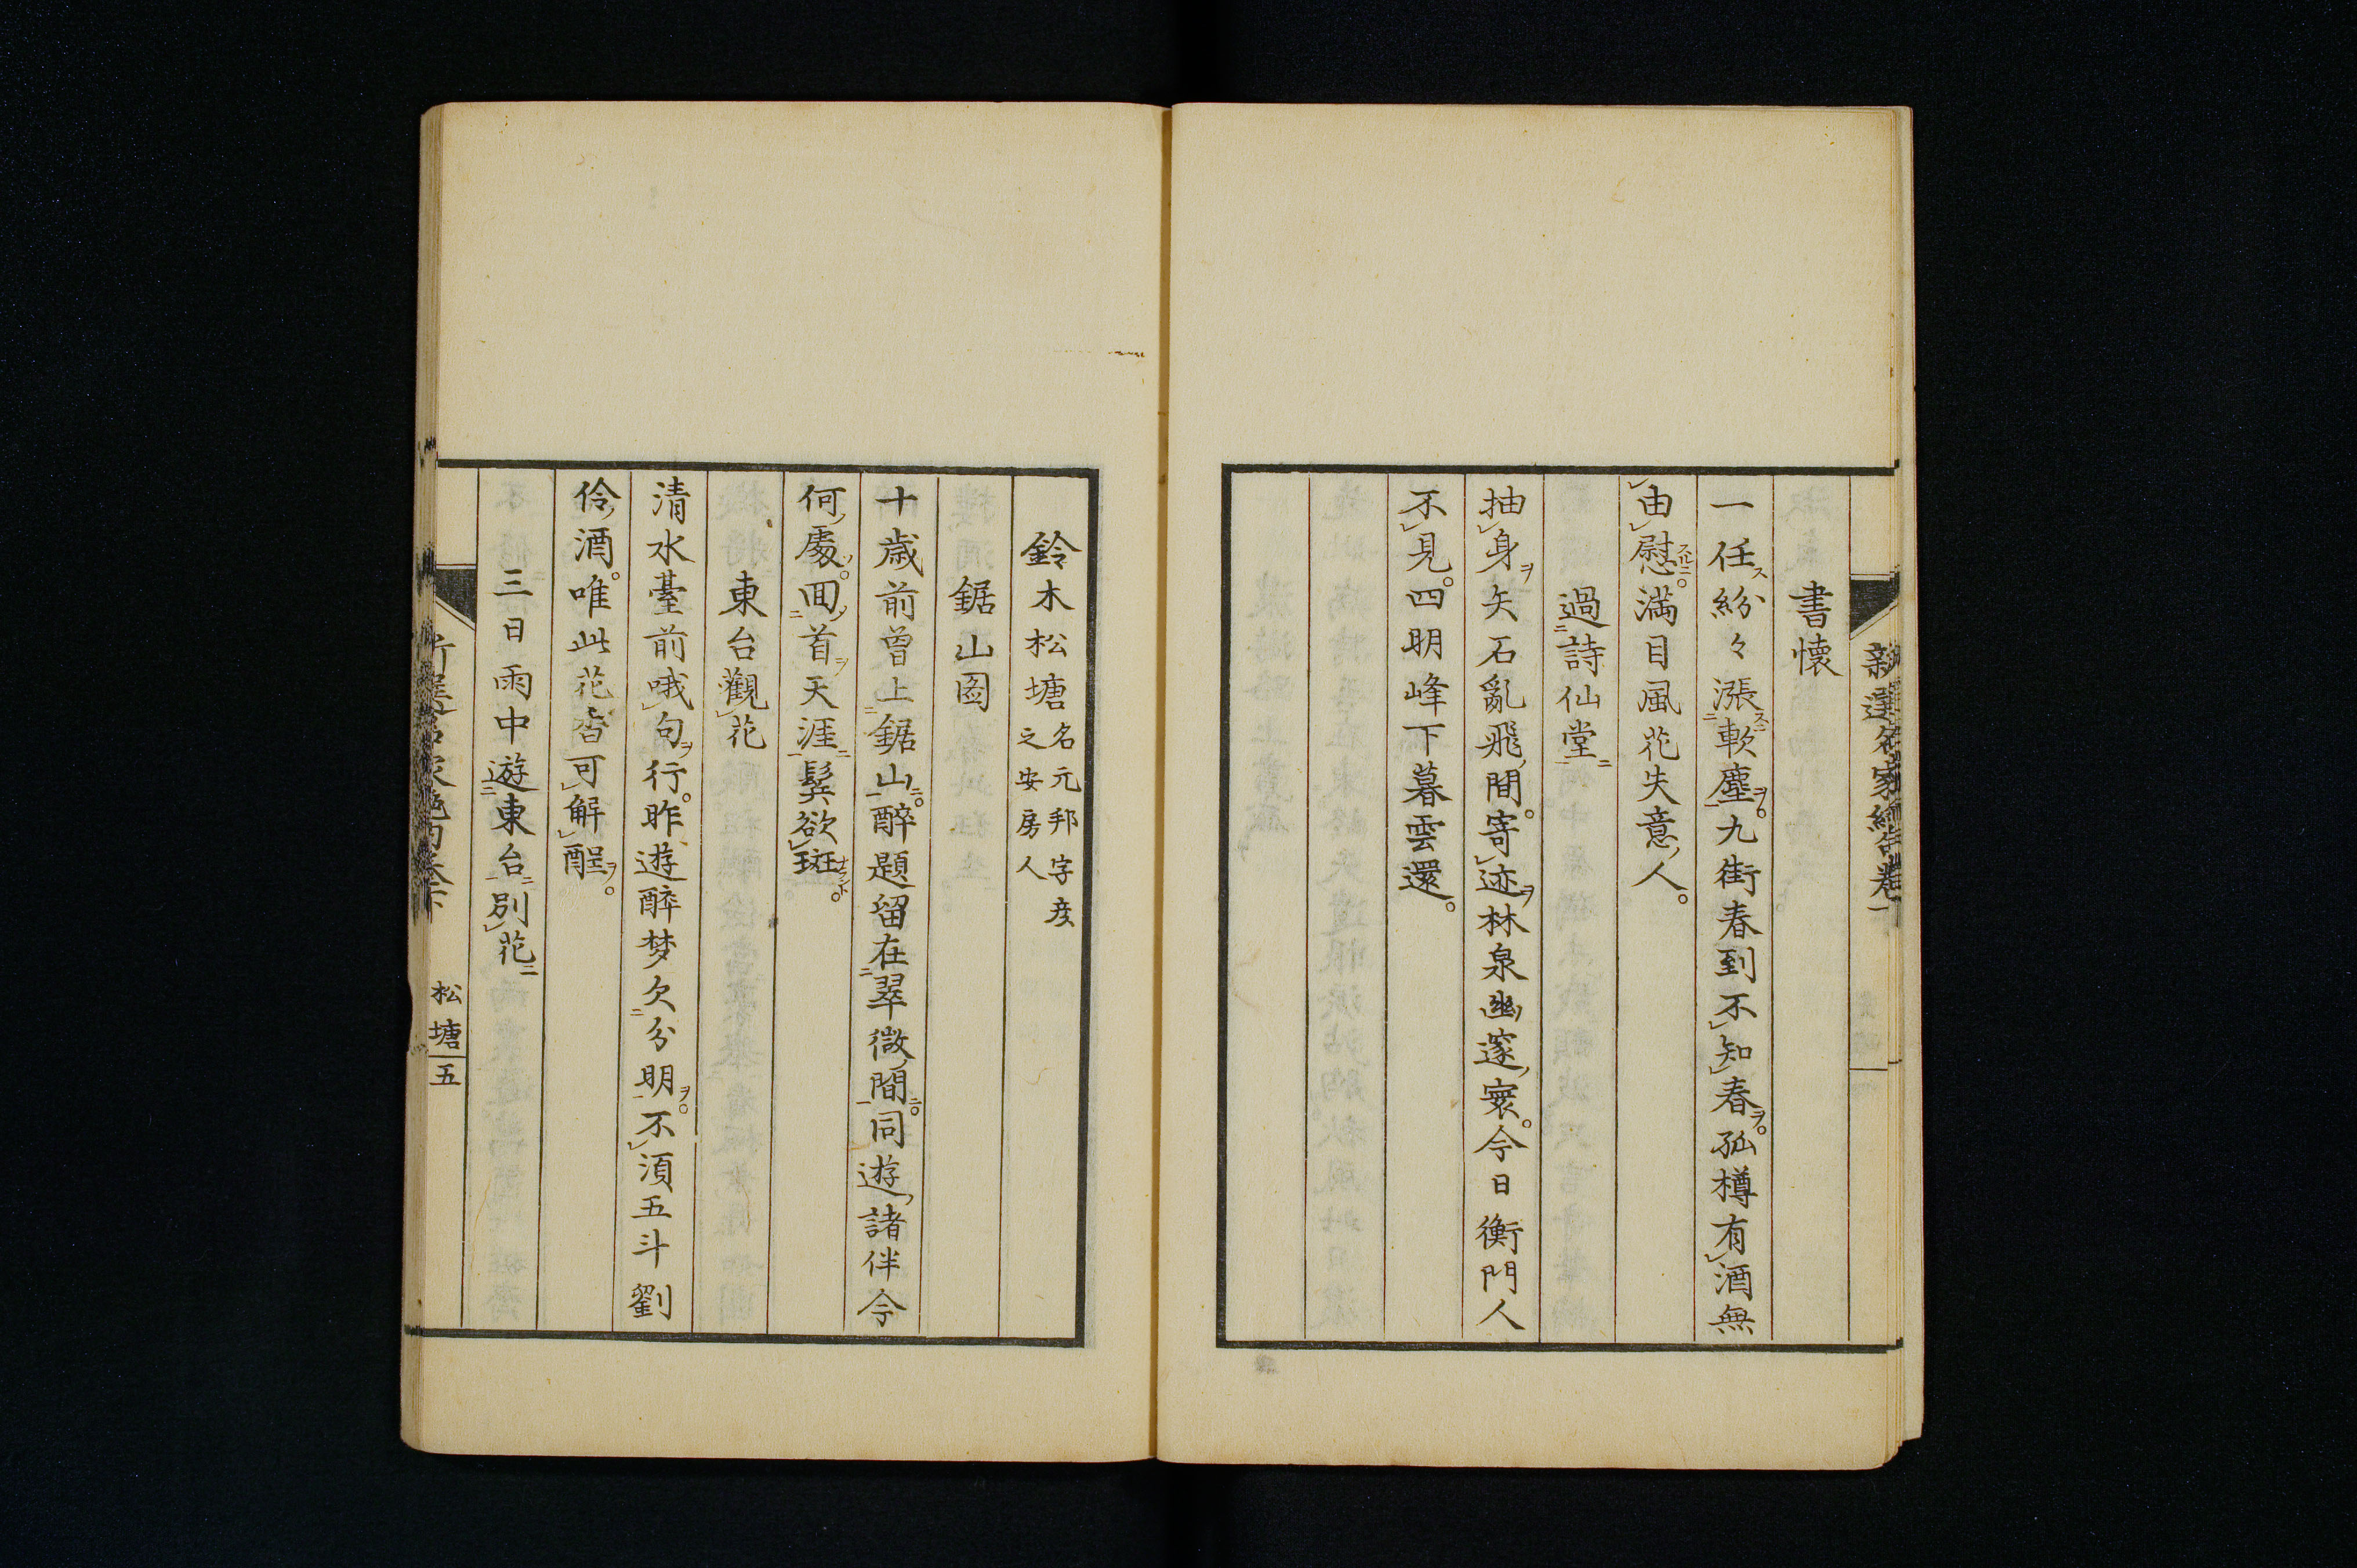 書懷
一任紛々漲軟塵。九街春到不知春。孤樽有酒無
由慰。滿目風花失意人。
過詩仙堂
抽身矢石亂飛間。寄迹林泉幽邃寰。今日衡門人
不見。四明峰下暮雲還。
鈴木松塘 名元邦字彦
之安房人
鋸山圖
十歳前曾上鋸山。醉題留在翠微間。同遊諸伴今
何處。回首天涯鬂欲斑。
東台觀花
清水臺前哦句行。昨遊醉梦欠分明。不須五斗劉
伶酒。唯此花香可解酲。
三日雨中遊東台別花
松塘 五